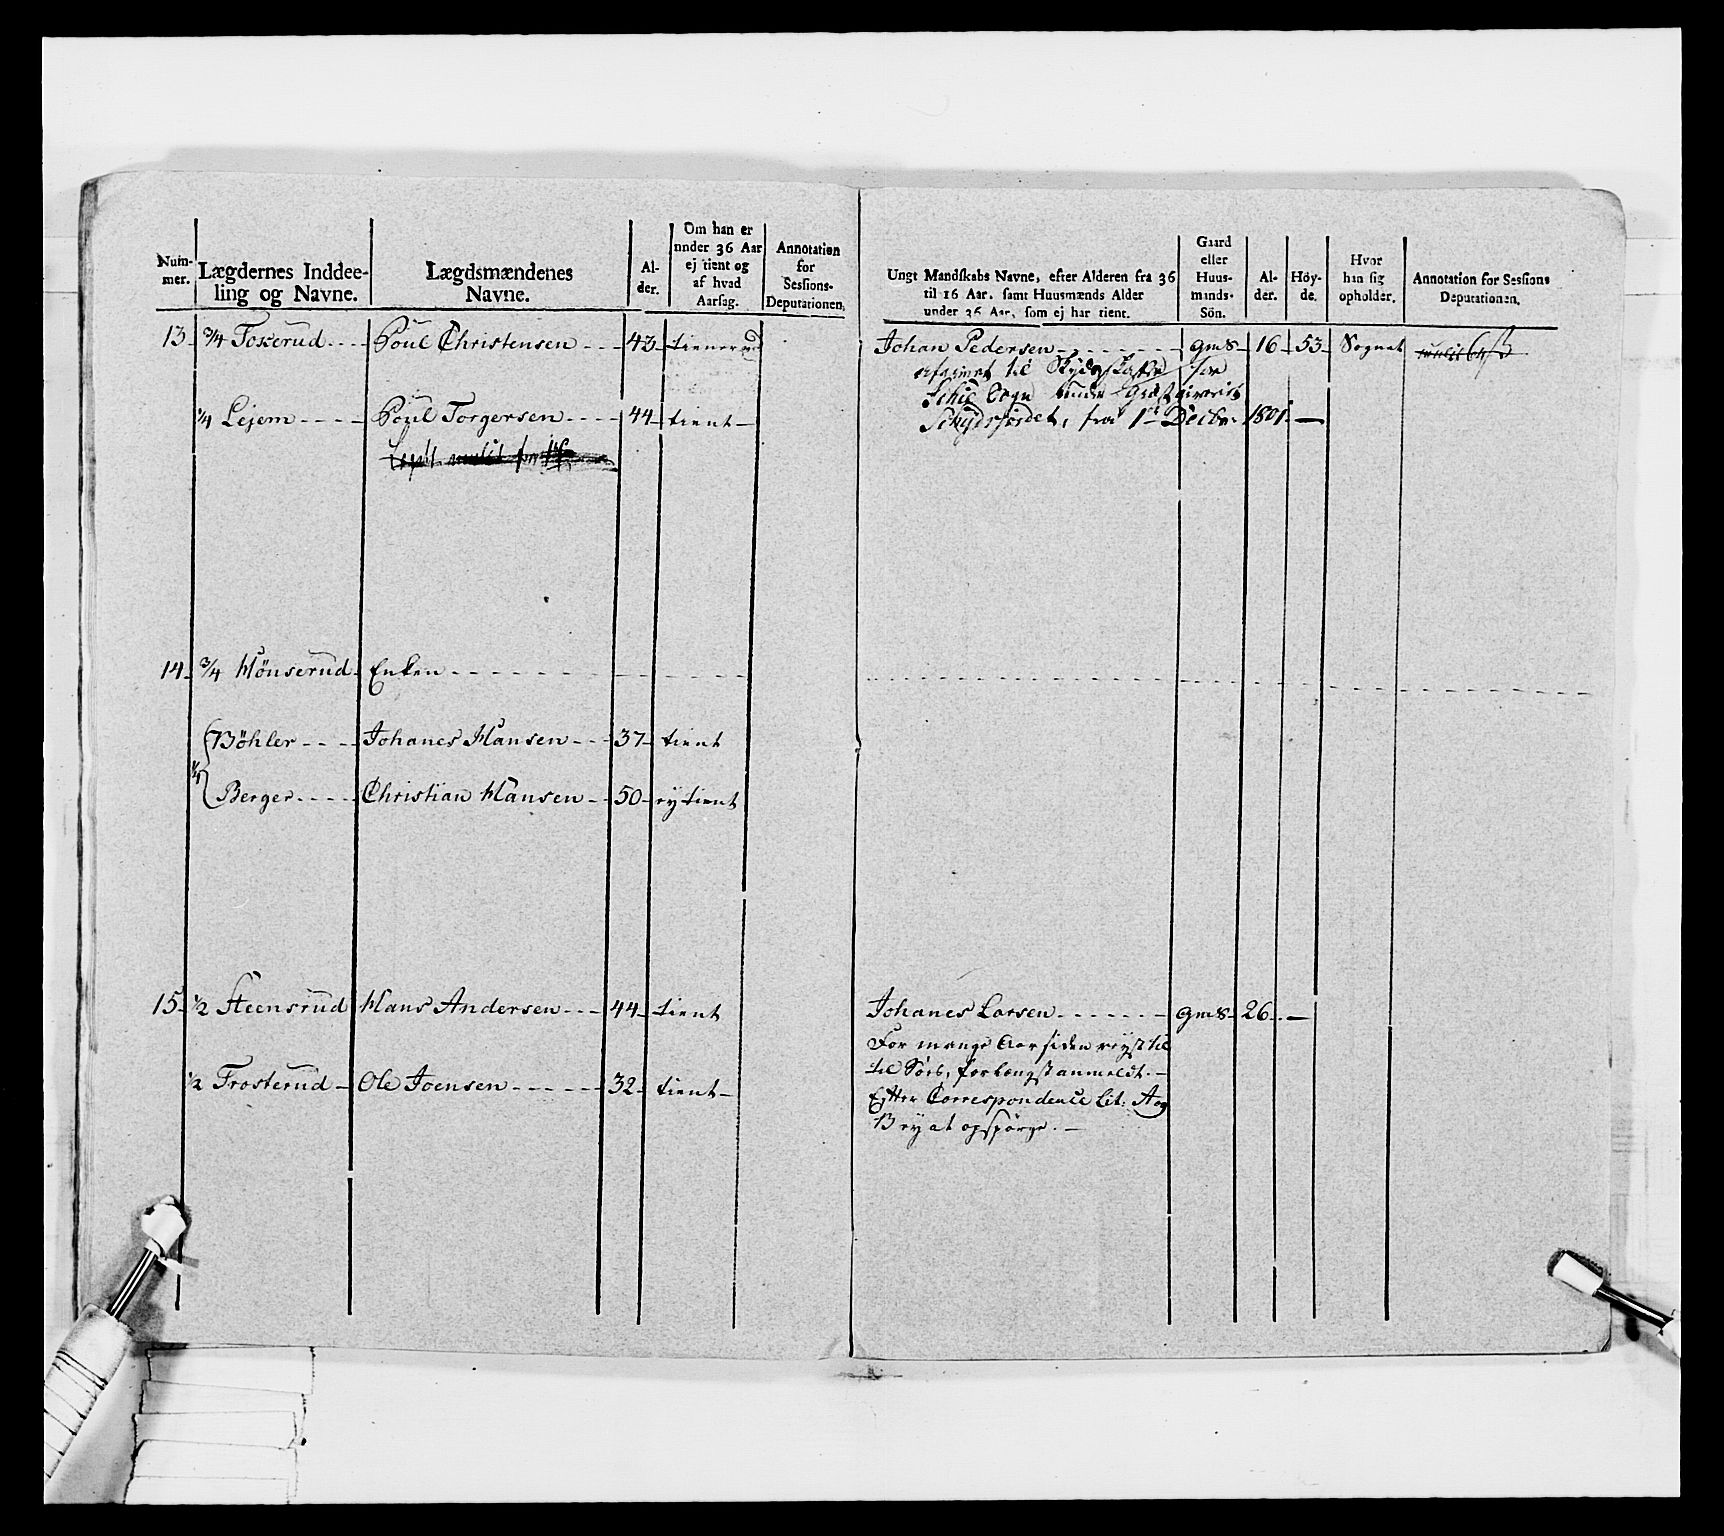 Num-
mer.
Lægdernes Inddee-
ling og Navne.
Lægdsmændenes
Navne.
Al-
der.
Om han er
under 36 Aar
ej tient og
af hvad
Aarsag.
Annotation
for
Sessions-
Deputationen.
13 3/4 Toserud Poul Christensen 43
1/4 Lejem Poul Torgersen 44 tient
14 3/4 Hönserud Enken
Böhler Johanes Hansen 37 tient
1/4
Berger Christian Hansen 50 ey tient
15 1/2 Steensrud Hans Andersen 44 tient
1/2 Frosterud Ole Joensen 32 tient
Ungt Mandskabs Navne, efter Alderen fra 36
til 16 Aar, samt Huusmænds Alder
under 36 Aar, som ej har tient.
Gaard
eller
Huus-
mands-
Sön.
Al-
der.
Höy-
de.
Hvor
han sig
opholder.
Annotation for Sessions
Deputationen.
Johan Pedersen gms 16 53 Sognet
til
Sogn under
fra 1 Decbr 1801
Johanes Larsen gms 26
For mange Aar siden reyst til
til Söes, forlængst anmeldt.
Efter Correspondence Lit: A og
B ey at opspörge.